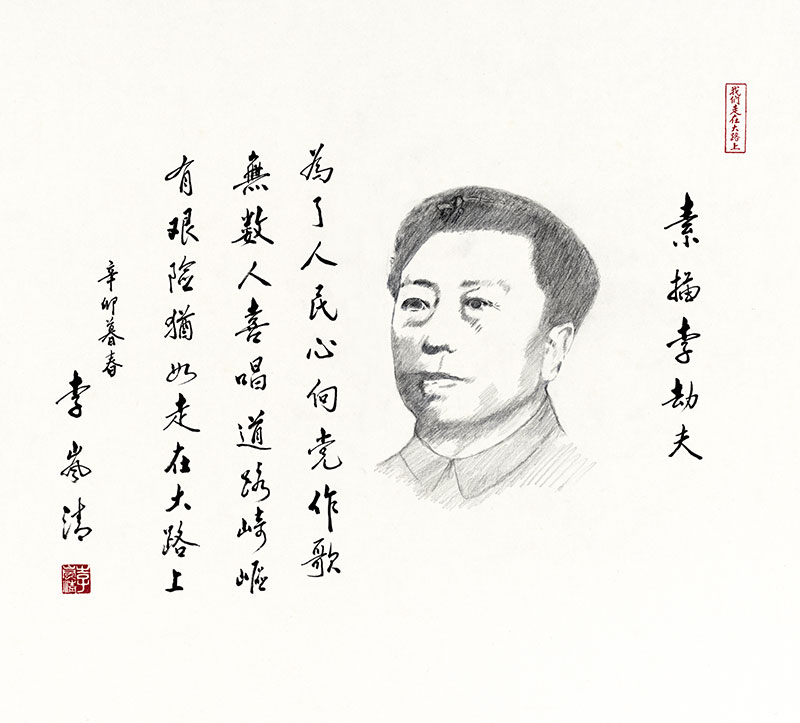 我们走在大路上
素描李劫夫
為了人民心向党作歌
無数人喜唱道路崎嶇
有艰險猶如走在大路上
辛卯暮春
李嵐清
李嵐清